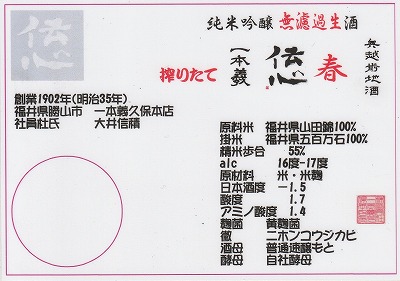 純米吟醸 無濾過生酒
奥越前地酒
伝心
一本義
伝心
春
搾りたて
創業1902年(明治35年)
福井県勝山市 一本義久保本店
社員杜氏 大井信積
原料米 福井県山田錦100%
掛米 福井県五百万石100%
精米歩合 55%
alc 16度-17度
原材料 米・米麹
日本酒度 -1.5
酸度 1.7
アミノ酸度 1.4
麹菌 黄麹菌
黴 ニホンコウジカビ
酒母 普通速醸もと
酵母 自社酵母